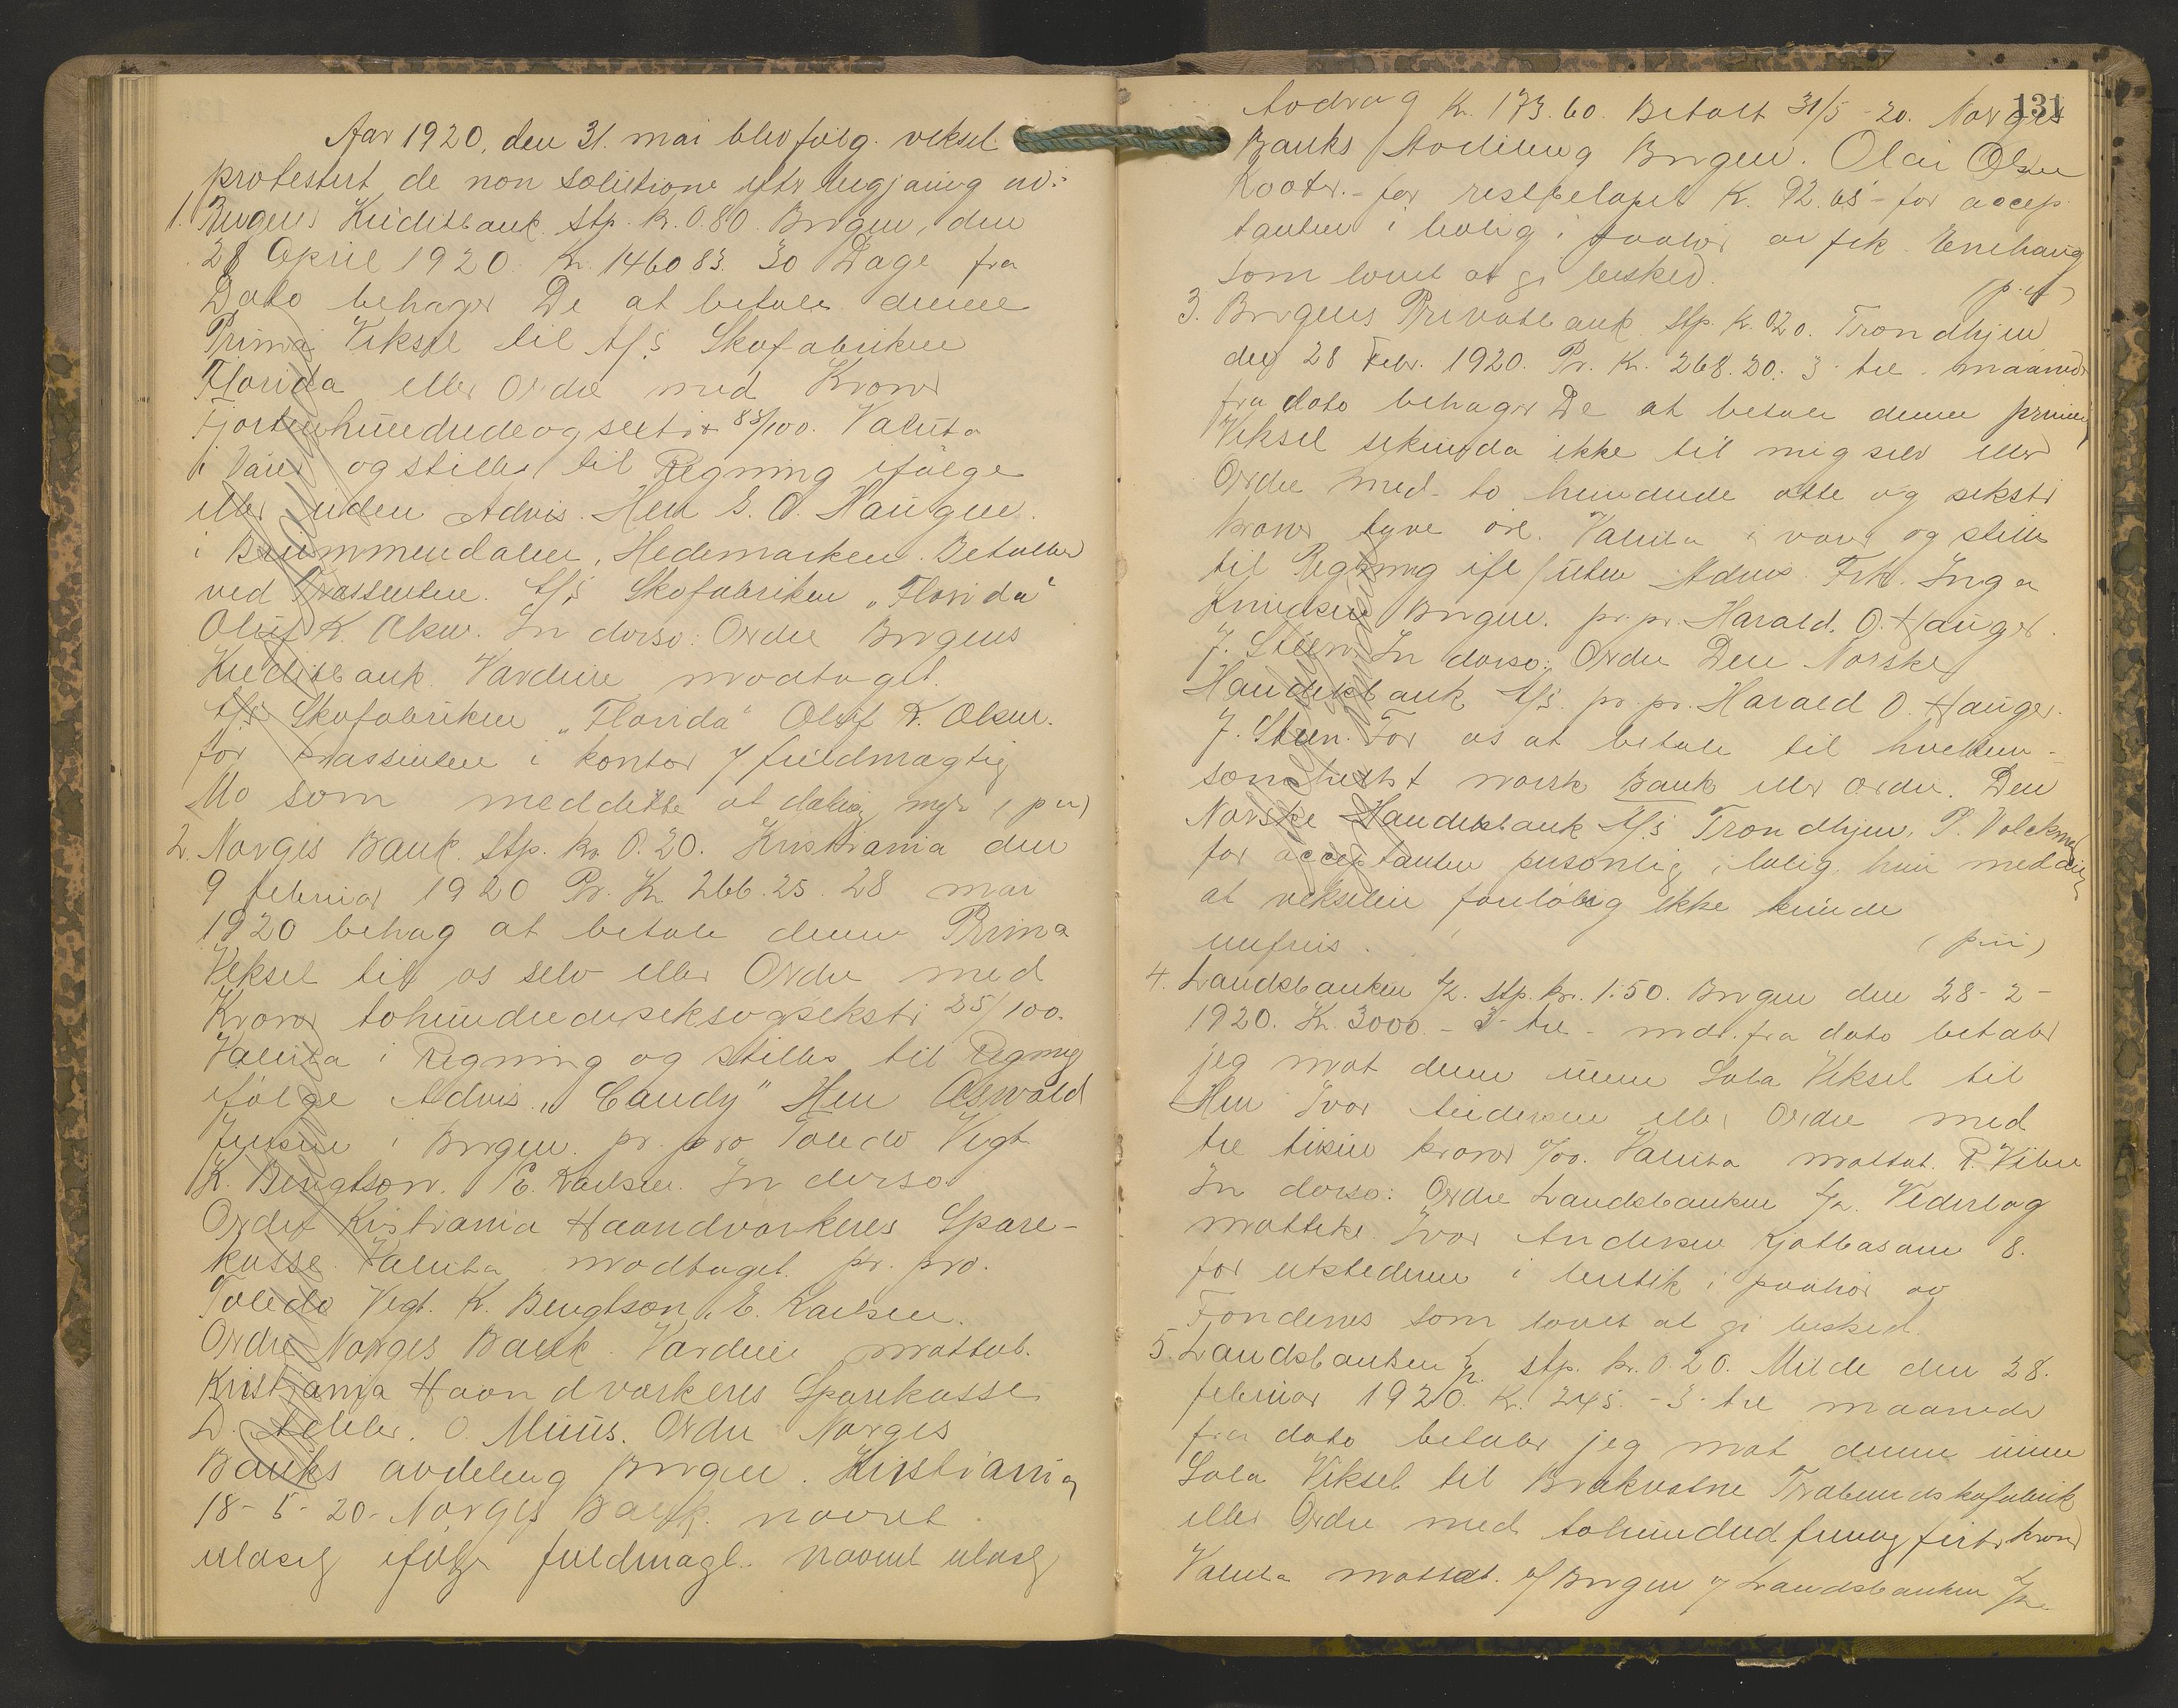 Aar 1920, den 31. mai blev følg. veksel
protestert de non solutione efter begjæring av:
1. Bergens Kreditbank. Stp. kr. 0.80. Bergen, den
28 April 1920. Kr. 1460 83. 30 Dage fra
Dato behager De at betale denne
Prima Veksel til A/S Skofabriken
Florida eller Ordre med Kroner
Fjortenhundredeogseksti 83/100. Valuta
i Varer og stilles til Regning ifølge
eller uden Advis. Herr S. O. Haugen.
i Brummendalen, Hedemarken. Betalbar
ved Trassenten. A/S Skofabriken "Florida"
Oluf K. Olsen. In dorso: Ordre Bergens
Kreditbank. Værdien modtaget.
A/S Skofabriken "Florida" Oluf K. Olsen.
for trassenten i kontor v/ fuldmægtig
Mo som meddelte at
2. Norges Bank. Stp. kr. 0.20. Kristiania den
9 februar 1920 Pr. Kr. 266.25. 28 mai
1920 behag at betale denne Prima
Veksel til os selv eller Ordre med
Kroner tohundredeseksogseksti 25/100.
Valuta i Regning og stilles til Regning
ifølge Advis. "Candy" Herr Oswald
Jensen i Bergen. pr. pro Toledo Vegt
K. Bengtson. E. Karlsen. In dorso
Ordre Kristiania Haandverkeres Spare-
kasse. Valuta modtaget. pr. pro.
Toledo Vegt. K. Bengtson. E. Karlsen.
Ordre Norges Bank. Værdien mottat.
Kristiania Haandverkeres Sparekasse
O. Muus. Ordre Norges
Banks avdeling Bergen. Kristiania
18-5-20. Norges Bank. navnet
ulæselig ifølge fuldmagt. navnet ulæselig
131
Avdrag Kr. 173.60. Betalt 31/5-20. Norges
Banks Avdeling Bergen. Olai Olsen
for restbeløpet Kr. 92.65 - for accep-
tanten i bolig i paahør av frk. Enehaug
som lovet at gi besked.
3. Bergens Privatbank. Stp. kr. 020. Trondhjem
den 28 Febr. 1920. Pr. Kr. 268.20. 3 - tre - maaneder
fra dato behager De at betale denne prima
Veksel sekunda ikke til mig selv eller
Ordre med to hundrede otte og seksti
kroner tyve øre. Valuta i varer og stilles
til Regning ifl/uten Advis. Frk. Inga
Bergen. pr. pr. Harald O. Hauger.
J. Steen. In dorso: Ordre Den Norske
Handelsbank A/S. pr. pr. Harald O. Hauger.
J. Steen. For os at betale til hvilken-
somhelst norsk bank eller ordre. Den
Norske Handelsbank A/S Trondhjem.
for acceptanten personlig i bolig, hun meddelte
at vekselen foreløbig ikke kunde
innfries.
4. Landsbanken A/L. Stp. kr. 1.50. Bergen den 28-2-
1920. Kr. 3000. - 3 - tre - mdr. fra dato betaler
jeg mot denne minn Sola Veksel til
Herr Ivar Andersen eller Ordre med
tre tusin kroner 0/00. Valuta mottat. P. Vilen
In dorso: Ordre Landsbanken A/L. Vederlag
motteke. Ivar Andersen Kjøtbasaren 8.
for utstederen i butik i paahør av
som lovet at gi besked.
5. Landsbanken A/L. Stp. kr. 0.20. Milde den 28.
februar 1920. Kr. 245. - 3 - tre maaneder
fra dato betaler jeg mot denne minn
Sola Veksel til Brakvatne Træbundskofabrik
eller Ordre med tohundred femogfirti kroner
Valuta mottat. p/ Bergen v/ Landsbanken A/L.